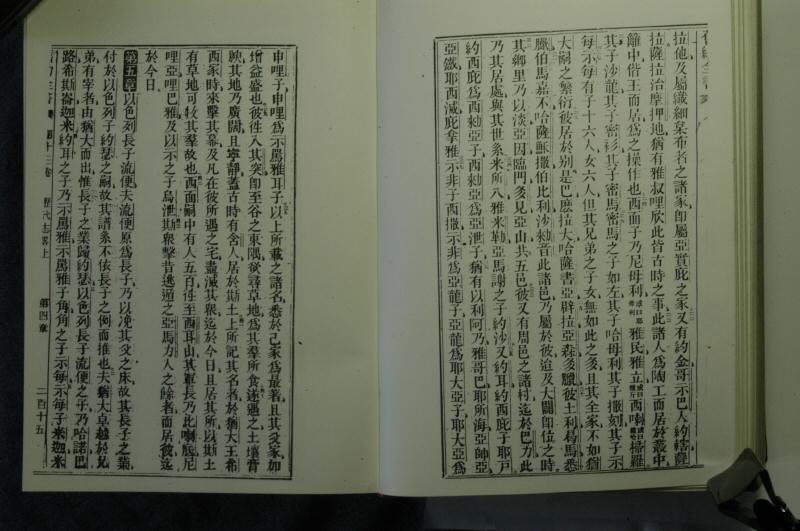 拉他及屬織細枲布者之諸家卽屬亞實庇之家又有約金哥示巴人約
拉薩拉治摩押地猶有雅叔哩欣此皆古時之事此諸人為陶工而居於叢中
籬中偕王而居為之操作也西面子乃尼母利雅民雅立西喇掃羅
其子沙龍其子密衫其子密馬密馬之子如左其子哈母利其子撒刻其子示
每示每有子十六人女六人但其兄弟之子女無如此之多且其全家不如猶
大嗣之繁衍彼居於别是巴摩拉大哈薩書亞辟拉亞森多臘彼土利曷馬悉
臘伯馬嘉不哈薩穌撒伯比利沙勑音此諸邑乃屬於彼迨及大闢卽位之時
其鄉里乃以淡亞因臨門多見亞山共五邑彼又有周邑之諸村迄於巴力此
乃其居處與其世系米所八雅米勒亞馬謝之子約沙又約耳約西庇子耶戸
約西庇為西勑亞子西勑亞為亞泄子猶有以利阿乃雅哥巴耶所海亞帥亞
亞鐵耶西滅庇拿雅示非子西撒示非為亞龍子亞龍為耶大亞子耶大亞為
申哩子申哩為示罵雅耳子以上所載之諸名悉於己家為最著且其父家加
增益盛也彼徃入其突卽至谷之東隅欲尋草地為其羣所食遂遇之土壤膏
腴其地乃廣闊且寧靜蓋古時有含人居於斯土上所記其名者於猶大王希
西家時來擊其幕及凡在彼所遇之宅盡滅其衆迄於今日且居其所以斯土
有草地可牧其羣故也西面嗣中有人五百徃至西耳山其軍長乃此喇底尼
哩亞哩巴雅及以示之子烏泄斯衆擊昔逃遁之亞馬力人之餘者而居彼迄
於今日
第五章以色列長子流便夫流便原為長子乃以凂其父之床故其長子之業
付於以色列子約瑟之嗣故其譜系不依長子之例而推也夫猶大卓越於兄
弟有宰者由猶大而出惟長子之業歸約瑟以色列長子流便之子乃哈諾巴
路希斯崙迦米約耳之子乃示罵雅示罵雅子角角之子示每示每子米迦米
十三卷 歷代志畧上 第四章 二百十五